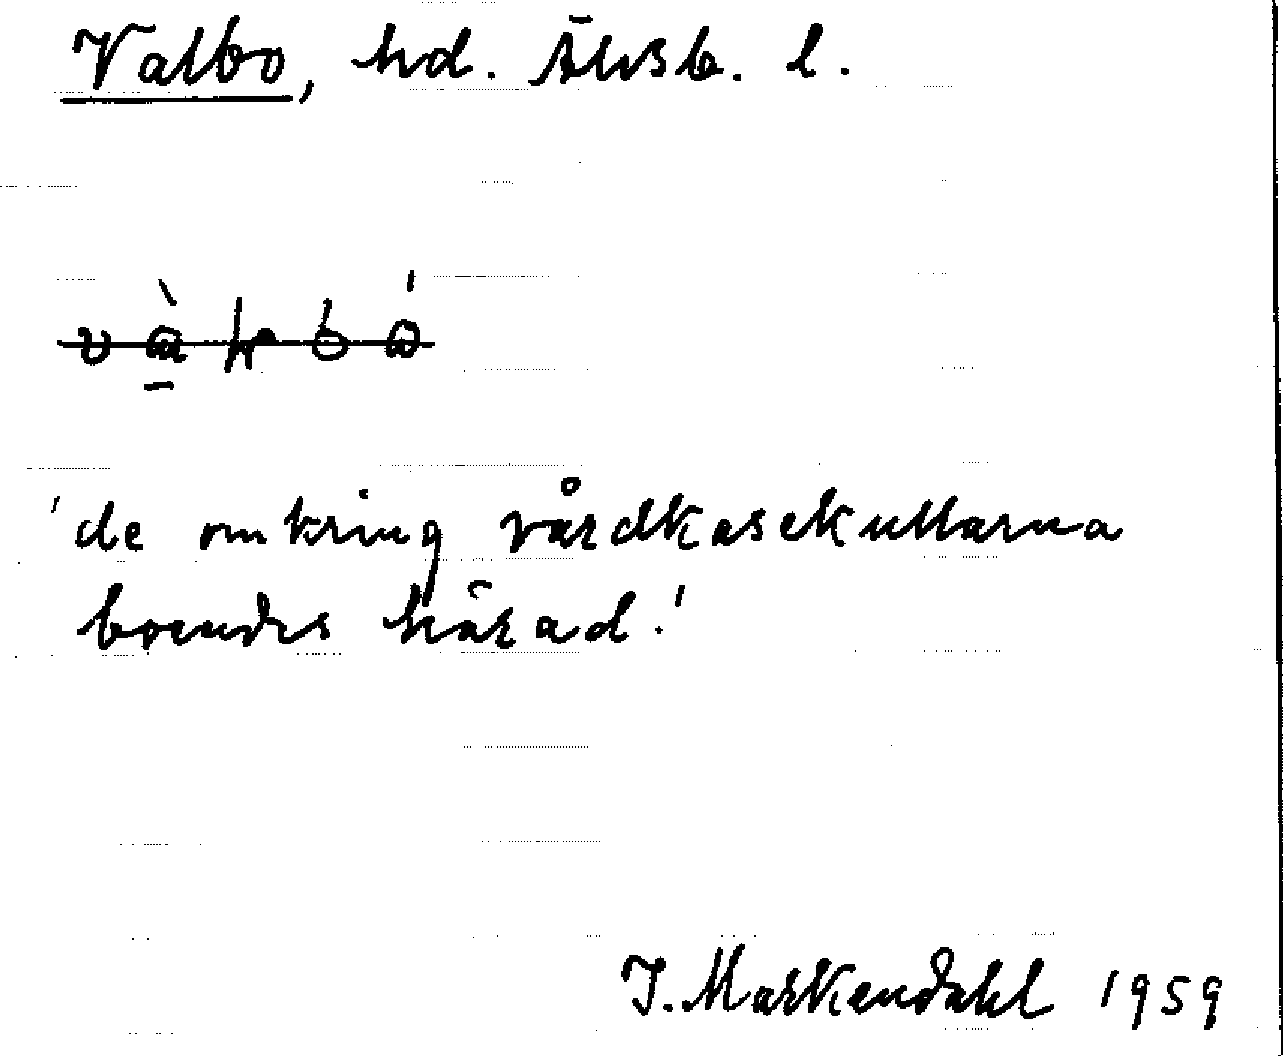 Valbo, hd. Älvsb. l.
'de omkring vårdkasekullarna
boendes härad.'
I. Markendahl 1959